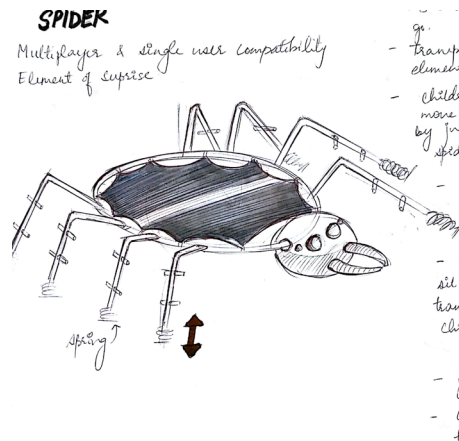 SPIDER
Multiplayer & single user compatibility
Element of Suprise
spring
go.
- transp
elemen
- childr
move
by ju
spid
-
-
sil
tran
chi
-
-